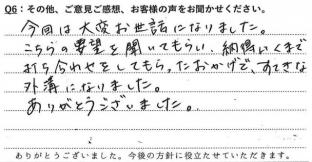 Q6：その他、ご意見ご感想、お客様の声をお聞かせください。
今回は大変お世話になりました。
こちらの要望を聞いてもらい、納得いくまで
打ち合わせをしてもらったおかげで、すてきな
外溝になりました。
ありがとうございました。
ありがとうございました。今後の方針に役立たせていただきます。